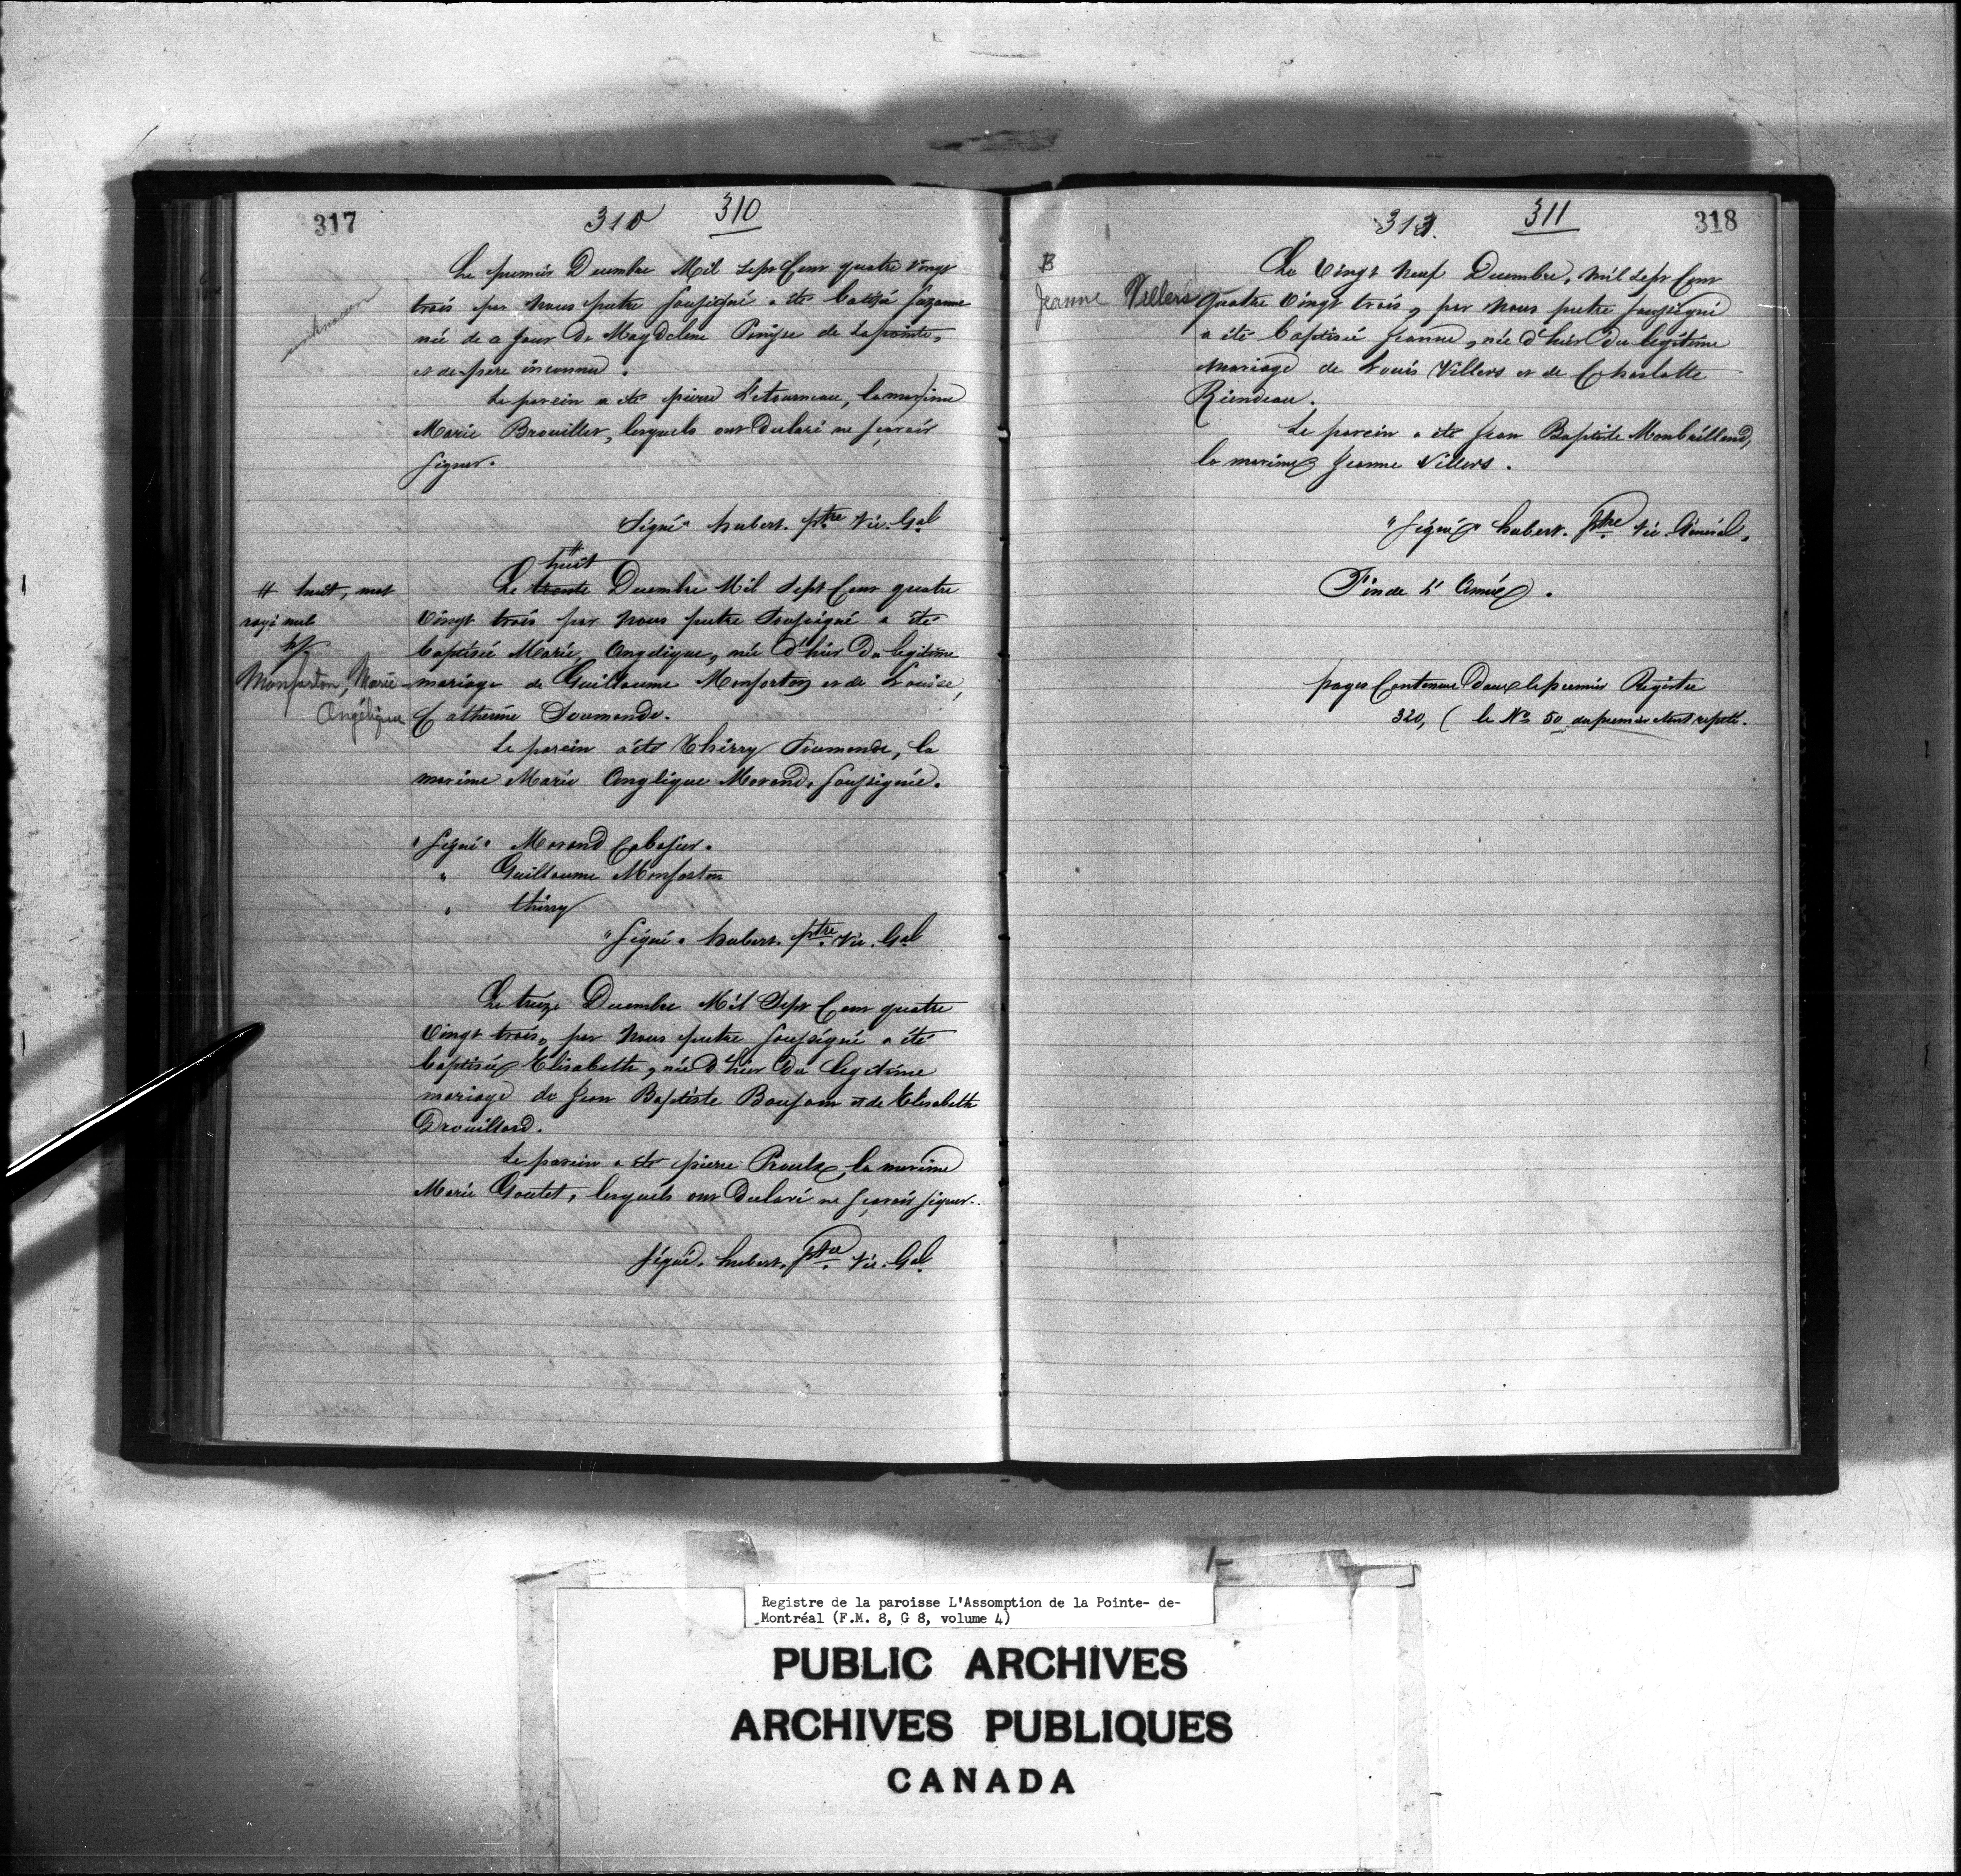 317
310 310
Le premier Decembre Mil sept Cent quatre Vingt
trois par Nous prêtre Soussigné a été batisé Suzanne
née de ce jour de Magdeleine de Lapointe,
et de père inconnu.
Le parein a été pierre Letourneau, la mareine
Marie Brouillet, lesquels ont declaré ne sçavoir
signer.
Signé " hubert. ptre Vic. Gal
unknown
# huit
Le trente Decembre Mil Sept Cent quatre
# huit, mot
rayé nul
Vingt trois par Nous prêtre Soussigné a été
baptisée Marie Angelique, née d'hier du legitime
Monforton, Marie
Angélique
mariage de Guillaume Monforton et de Louise,
Catherine Soumande.
Le parein a été Thirry Soumande, la
mareine Marie Anglique Morand, soussignée.
" Signé " Morand Cabasier.
" Guillaume Monforton
" thirry
" Signé " hubert. ptre Vic. Gal
Le treize Decembre Mil Sept Cent quatre
Vingt trois, par Nous prêtre soussigné a été
baptisée Elisabeth, née d'hier du legitime
mariage de Jean Baptiste Boufom et de Elisabeth
Drouillard.
Le parein a été pierre Proulx, la mareine
Marie Goutet, lesquels ont declaré ne sçavoir signer.
Signé. hubert. ptre Vic. Gal
311 318
B
Jeanne Villers
Le Vingt neuf Decembre, mil sept Cent
quatre Vingt trois, par Nous prêtre soussigné
a été baptisée Jeanne, née d'hier du legitime
mariage de Louis Villers et de Charlotte
Riendeau.
Le parein a été Jean Baptiste Monbrilland,
la mareine Jeanne Villers.
" Signé " hubert. ptre Vic. Général.
Fin de L'Année.
pages Contenue dans le premier Registre
320, ( le No 50 du premier étant repeté.
Registre de la paroisse L'Assomption de la Pointe- de-
Montréal (F.M. 8, G 8, volume 4)
PUBLIC ARCHIVES
ARCHIVES PUBLIQUES
CANADA